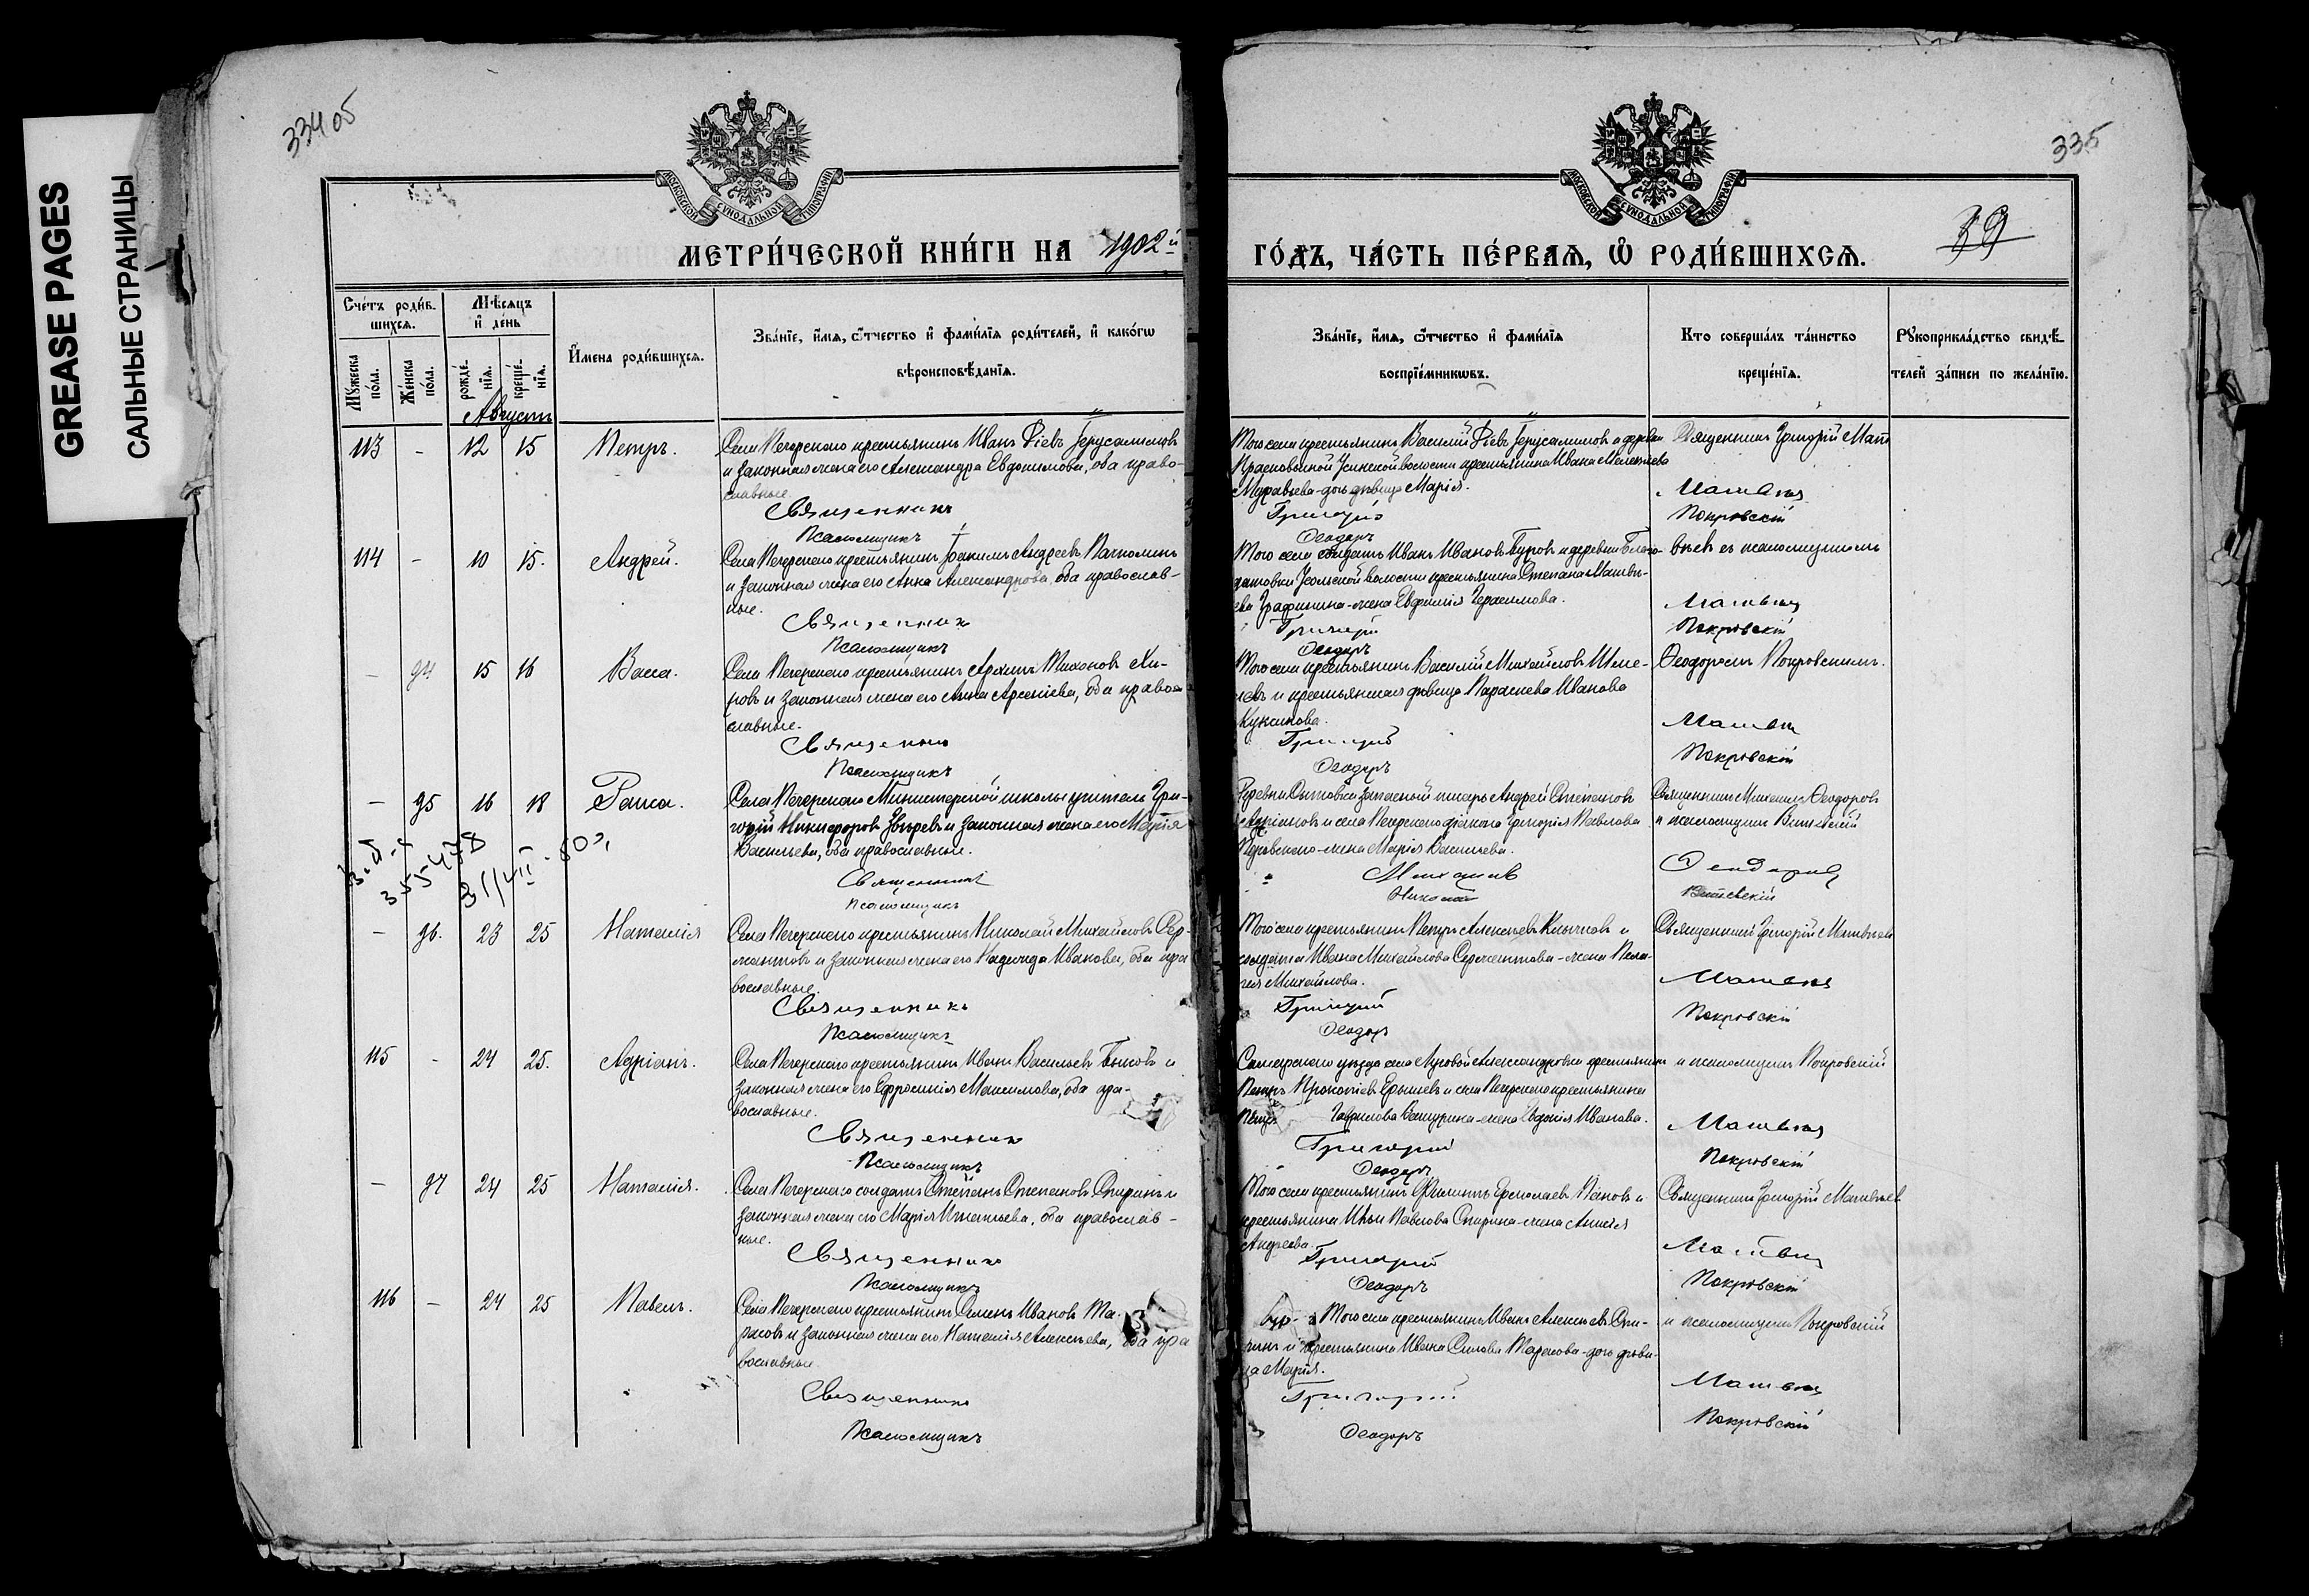 334 об
335
GREASE PAGES
САЛЬНЫЕ СТРАНИЦЫ
МОСКОВСКОЙ СѴНОДАЛЬНОЙ ТИПОГРАФІИ
МОСКОВСКОЙ СѴНОДАЛЬНОЙ ТИПОГРАФІИ
МЕТРИ́ЧЕСКОЙ КНИ́ГИ НА 1902й
ГО́ДЪ, ЧА́СТЬ ПЕ́РВАЯ, Ѡ РОДИ́ВШИХСЯ.
39
Сче́тъ роди́в-
шихся.
Мѣсяцъ
и де́нь
Мꙋжеска
по́ла.
Же́нска
по́ла.
рожде́-
нїя.
креще́-
нїя.
Имена роди́вшихся.
Зва́нїе, и́мя, ѻ́тчество и фами́лїя роди́телей, и како́гѡ
вѣроисповѣ́данїя.
Зва́нїе, и́мя, ѻ́тчество и фами́лїя
воспрїе́мникѡвъ.
Кто соверша́лъ та́инство
креще́нїя.
Рꙋкоприкла́дство свидѣ́-
телей за́писи по жела́нїю.
Августъ
113 - 12 15 Петръ.
Села Печерскаго крестьянинъ Иванъ Фіевъ Іерусалимовъ
и законная жена его Александра Евдокимова, оба право-
славные.
Священникъ
Псаломщикъ
Того села крестьянинъ Василій Фіевъ Іерусалимовъ и деревни
Усинской волости крестьянина Ивана
Муравьева-дочь дѣвица Марія.
Григорій
Ѳеодоръ
Священникъ Григорій
Матвѣевъ
Покровскій
114 - 10 15. Андрей.
Села Печерскаго крестьянинъ Іоакимъ Андреевъ
и законная жена его Анна Александрова, оба православ-
ные.
Священникъ
Псаломщикъ
Того села солдатъ Иванъ Ивановъ и деревни
Усольской волости крестьянина Степана Матвѣ-
ева жена Евфимія Герасимова.
Григорій
Ѳеодоръ
съ псаломщикомъ
Матвѣевъ
Покровскій
- 94 15 16 Васса.
Села Печерскаго крестьянинъ Архипъ Тихоновъ
и законная жена его Анна Арсеніева, оба право-
славные.
Священникъ
Псаломщикъ
Того села крестьянинъ Василій Михайловъ Шме-
левъ и крестьянская дѣвица Параскева Иванова
Григорій
Ѳеодоръ
Ѳеодоромъ Покровскимъ.
Матвѣевъ
Покровскій
- 95 16 18 Раиса.
Села Печерскаго Министерской школы учитель Гри-
горій Никифоровъ Звѣревъ и законная жена его Марія
Васильева, оба православные.
Священникъ
Псаломщикъ
Деревни запасный писарь Андрей Степановъ
и села Печерскаго діакона Григорія Павлова
жена Марія Васильева.
Михаилъ
Николай
Священникъ Михаилъ Ѳеодоровъ
и псаломщикъ
Ѳеодоровъ
- 96. 23 25 Наталія
Села Печерскаго крестьянинъ Николай Михайловъ Сер-
жантовъ и законная жена его Надежда Иванова, оба пра-
вославные.
Священникъ
Псаломщикъ
Того села крестьянинъ Петръ Алексѣевъ и
солдата Ивана Михайлова Сержантова-жена Пела-
гія Михайлова.
Григорій
Ѳеодоръ
Священникъ Григорій Матвѣевъ
Матвѣевъ
Покровскій
115 - 24 25. Адріанъ.
Села Печерскаго крестьянинъ Иванъ Васильевъ Быковъ и
законная жена его Ефросинія Максимова, оба пра-
вославные.
Священникъ
Псаломщикъ
Самарскаго уѣзда села Луговой Александровки крестьянинъ
Петръ Прокопіевъ и села Печерскаго крестьянина
Гаврилова жена Евдокія Иванова.
Григорій
Ѳеодоръ
и псаломщикъ Покровскій
Матвѣевъ
Покровскій
- 97 24 25 Наталія.
Села Печерскаго солдатъ Степанъ Степановъ Спиринъ и
законная жена его Марія Игнатьева, оба православ-
ные.
Священникъ
Псаломщикъ
Того села крестьянинъ Филиппъ Ермолаевъ Пановъ и
крестьянина Ильи Павлова Спирина-жена Анисія
Андреева.
Григорій
Ѳеодоръ
Священникъ Григорій Матвѣевъ
Матвѣевъ
Покровскій
116 - 24 25 Павелъ.
Села Печерскаго крестьянинъ Семенъ Ивановъ Та-
расовъ и законная жена его Наталія Алексѣева, оба пра-
вославные.
Священникъ
Псаломщикъ
Того села крестьянинъ Иванъ Алексѣевъ Спи-
ринъ и крестьянина Ивана Силова Тарасова-дочь дѣви-
ца Марія.
Григорій
Ѳеодоръ
и псаломщикъ Покровскій
Матвѣевъ
Покровскій